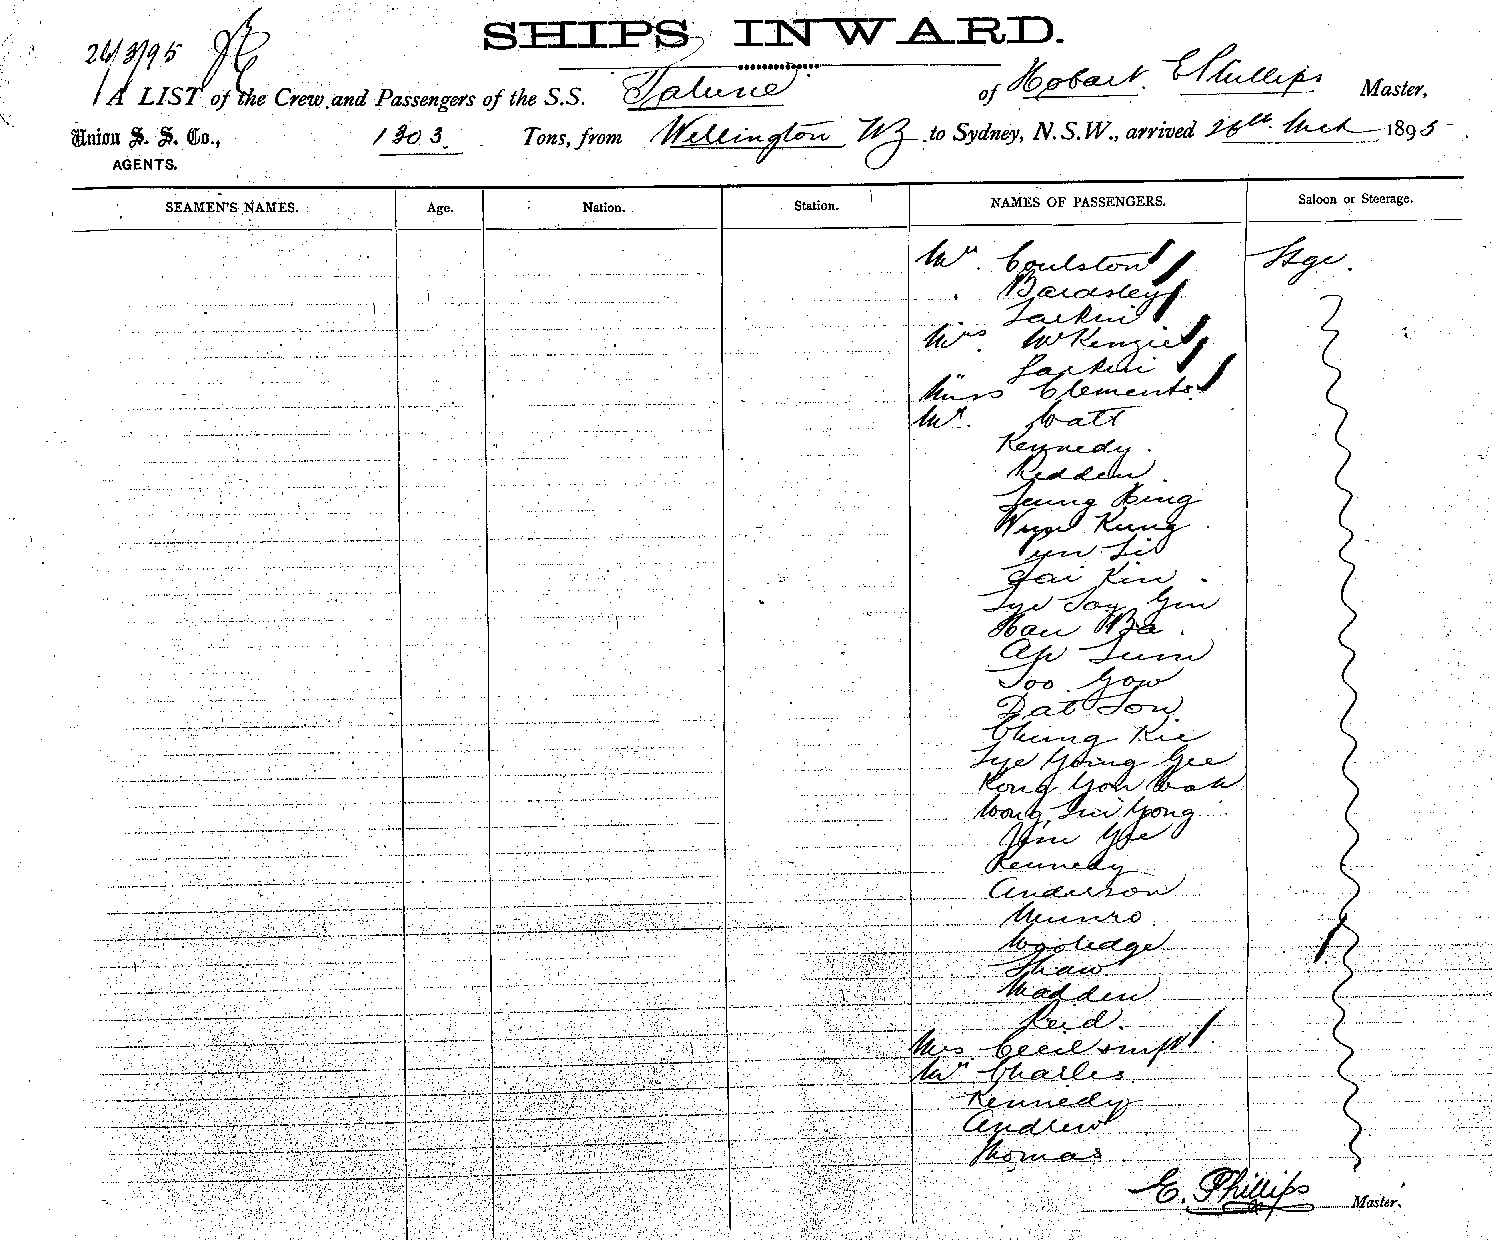 SHIPS INWARD.
26/3/95
A LIST of the Crew and Passengers of the S.S. Talune of Hobart. E Phillips Master,
Union S. S. Co., 1303 Tons, from Wellington NZ to Sydney, N.S.W., arrived 26th Mch 1895
AGENTS.
SEAMEN'S NAMES. Age. Nation. Station. NAMES OF PASSENGERS. Saloon or Steerage.
Mr. Coulston Stge.
Bardsley
Larkin
Mrs McKenzie
Larkin
Miss Clements
Mr. Watt
Kennedy.
Redden.
Leung King
Kung
Sye Gin
Ah Lum
Too Gow
Dat Son
Chung Kie
Sye Young Gee
Kong Yow Wah
Wong Yong
Jim Yee
Kennedy
Anderson
Munro
Wooledge
Shaw
Madden
Reid.
Mrs Cecil
Mr Charles
Kennedy
Andrew
Thomas
E. Phillips Master.